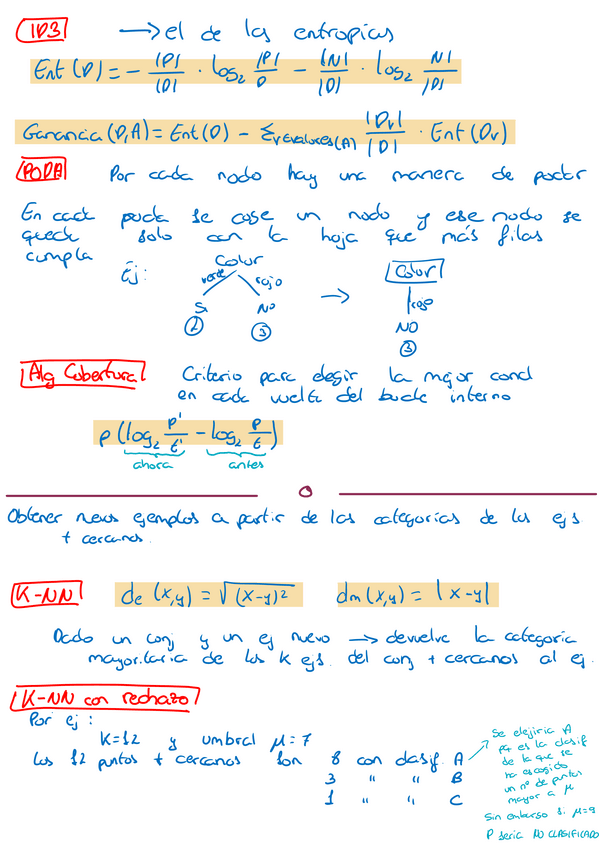 ID3 → el de las entropías
Ent (D) = - |P|/|D| · log₂ |P|/D - |N|/|D| · log₂ |N|/|D|
Ganancia (D,A) = Ent(D) - Σv∈valores(A) |Dv|/|D| · Ent (Dv)
PODA Por cada nodo hay una manera de podar
En cada poda se coge un nodo y ese nodo se
queda solo con la hoja que más filas
cumpla
Ej: Color → Color
verde rojo rojo
Si NO NO
2 3 3
Alg Cobertura Criterio para elegir la mejor cond
en cada vuelta del bucle interno
p (log₂ p'/t' - log₂ p/t)
ahora antes
Obtener nuevos ejemplos a partir de las categorías de los ejs
+ cercanos.
K-NN de (x,y) = √(x-y)² dm (x,y) = |x-y|
Dado un conj y un ej nuevo → devuelve la categoría
mayoritaria de los K ejs. del conj + cercanos al ej.
K-NN con rechazo
Por ej:
K=12 y umbral μ=7
Los 12 puntos + cercanos son 8 con clasif. A
3 " " B
1 " " C
Se elejiria A
pq es la clasif
de la que se
ha escogido
un nº de puntos
mayor a μ
Sin embargo si μ=9
P seria NO CLASIFICADO